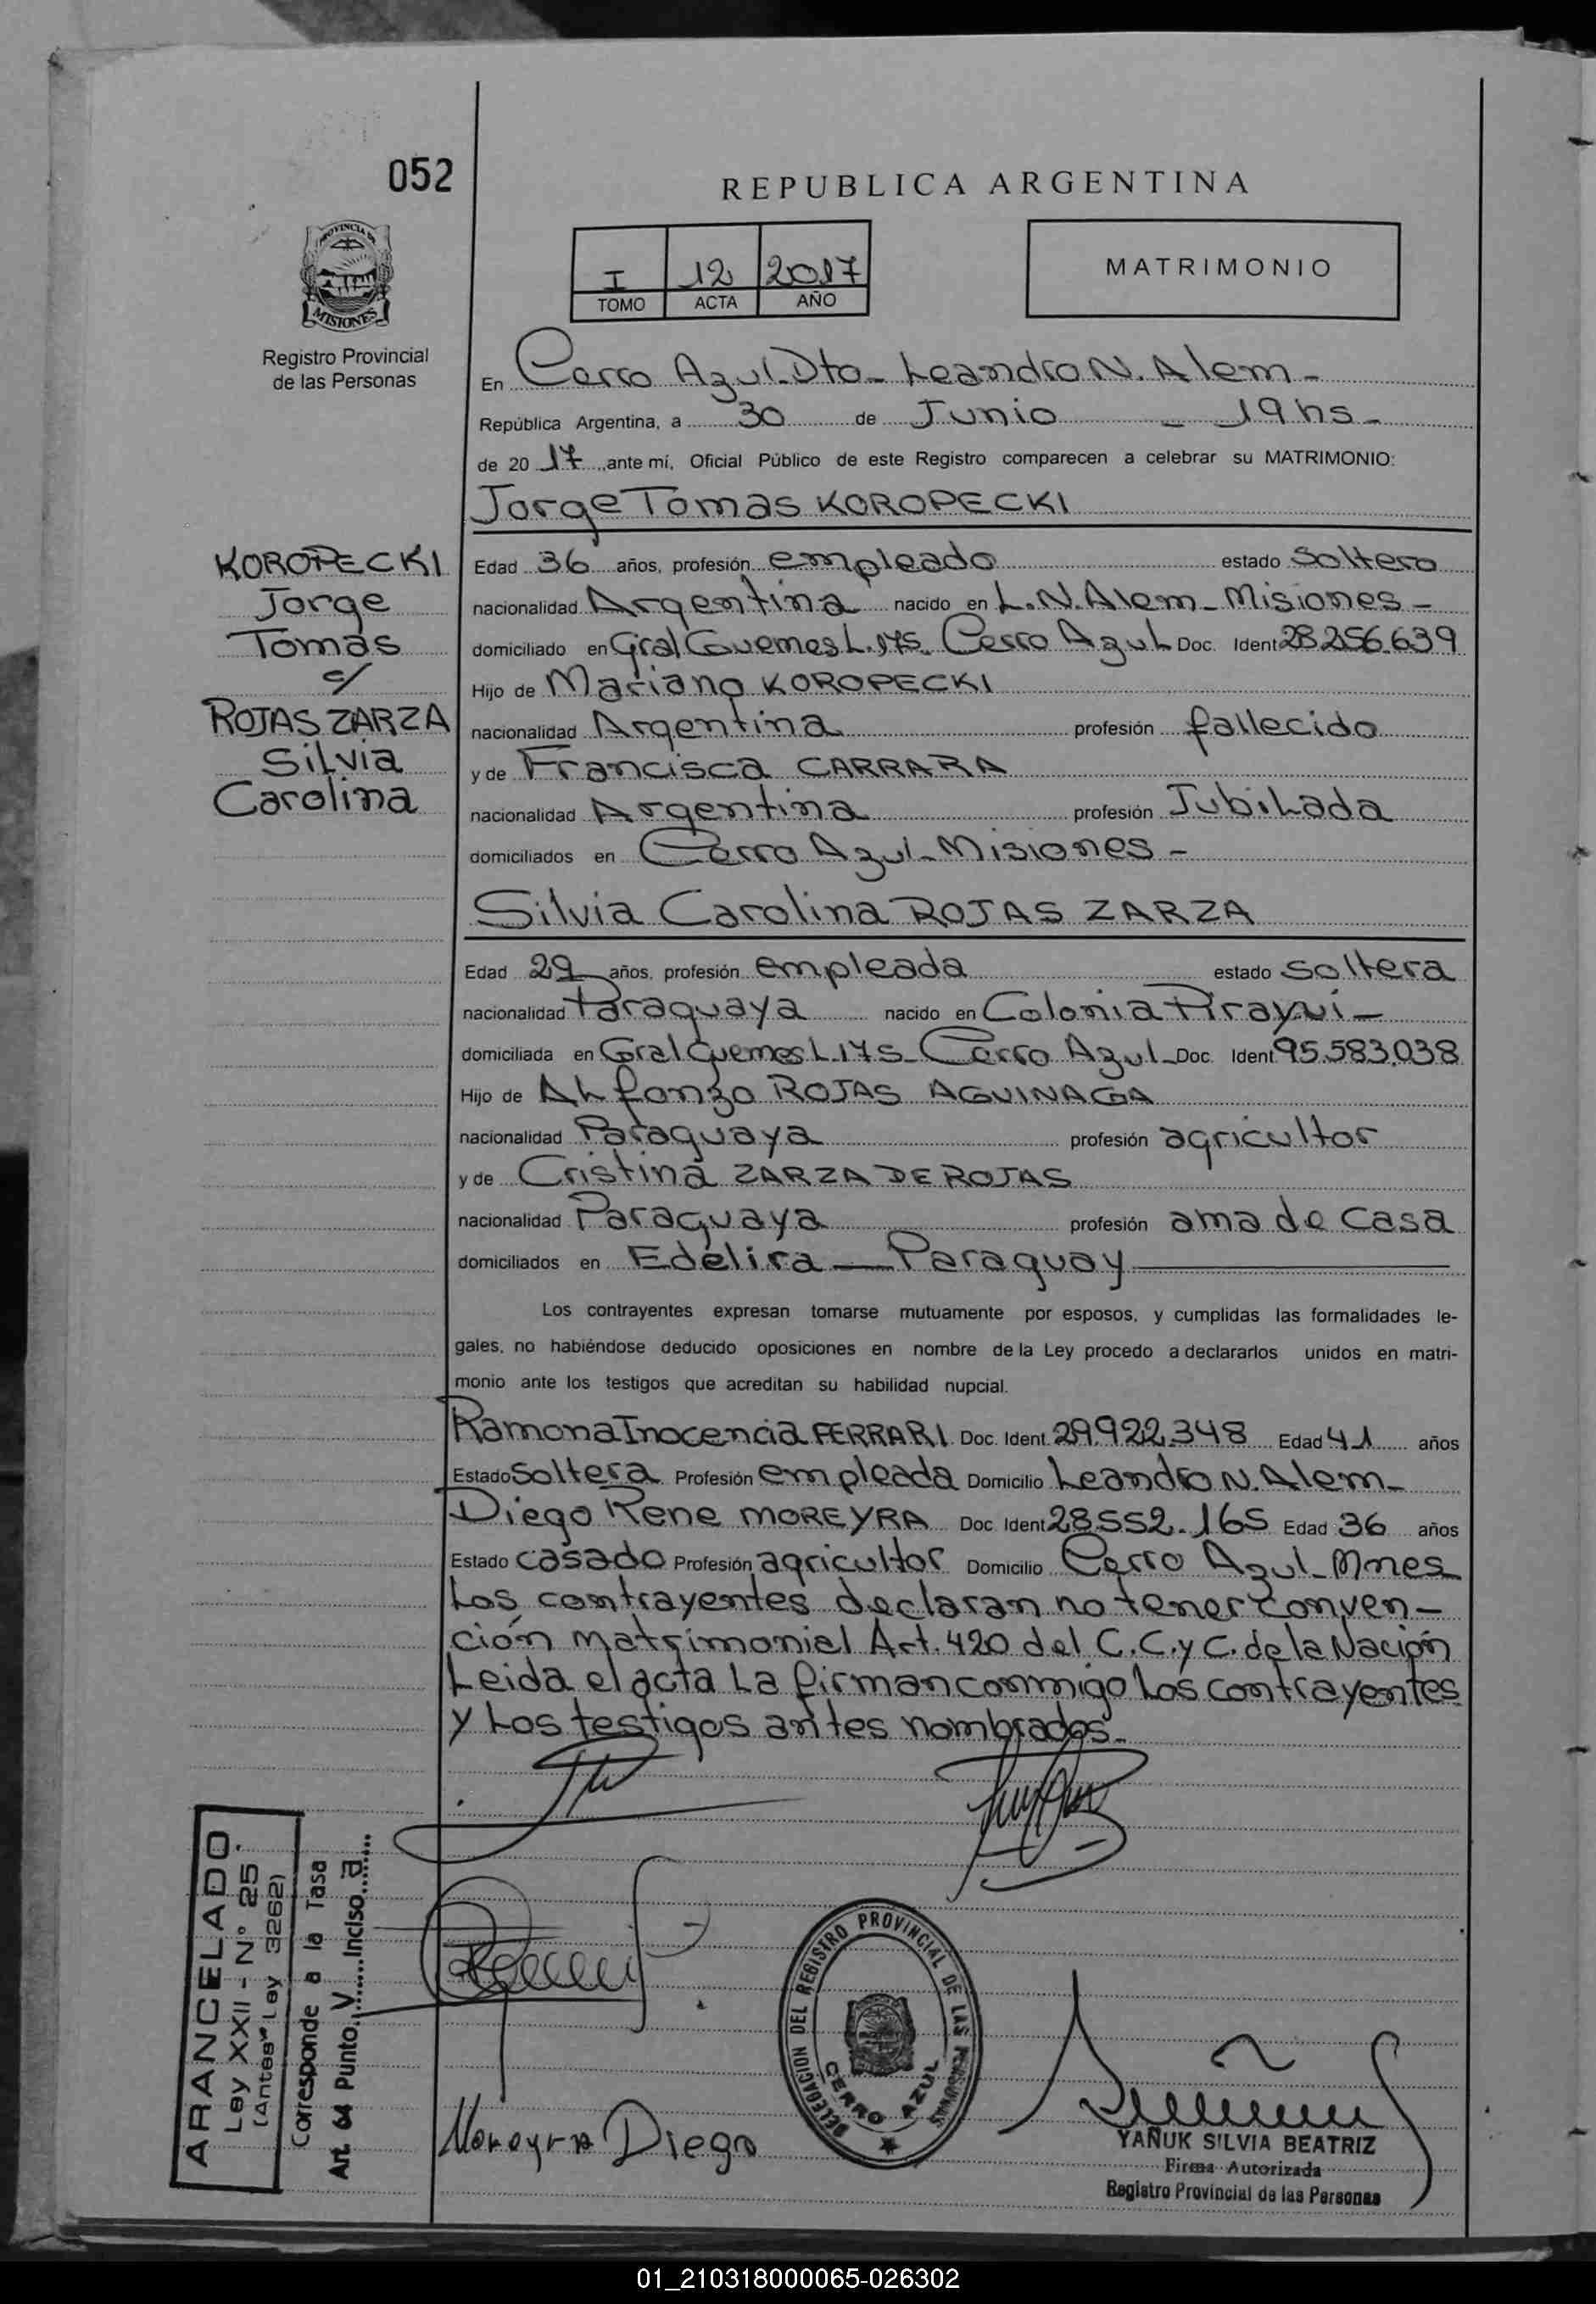 052
REPUBLICA ARGENTINA
PROVINCIA DE
MISIONES
Registro Provincial
de las Personas
I 12 2017
TOMO ACTA AÑO
MATRIMONIO
En Cerro Azul-Dto-Leandro N. Alem-
República Argentina, a 30 de Junio - 19 hs-
de 20 17, ante mí, Oficial Público de este Registro comparecen a celebrar su MATRIMONIO:
Jorge Tomas KOROPECKI
KOROPECKI
Jorge
Tomás
c/
ROJAS ZARZA
Silvia
Carolina
Edad 36 años, profesión empleado estado Soltero
nacionalidad Argentina nacido en L.N. Alem-Misiones-
domiciliado en Gral Guemes L.175. Cerro Azul Doc. Ident 28.256.639
Hijo de Mariano KOROPECKI
nacionalidad Argentina profesión fallecido
y de Francisca CARRARA
nacionalidad Argentina profesión Jubilada
domiciliados en Cerro Azul-Misiones-
Silvia Carolina ROJAS ZARZA
Edad 29 años, profesión empleada estado soltera
nacionalidad Paraguaya nacido en Colonia Pirayui-
domiciliada en Gral Guemes L.175-Cerro Azul-Doc. Ident 95.583.038
Hijo de Alfonzo ROJAS AGUINAGA
nacionalidad Paraguaya profesión agricultor
y de Cristina ZARZA DE ROJAS
nacionalidad Paraguaya profesión ama de casa
domiciliados en Edelira — Paraguay
Los contrayentes expresan tomarse mutuamente por esposos, y cumplidas las formalidades le-
gales, no habiéndose deducido oposiciones en nombre de la Ley procedo a declararlos unidos en matri-
monio ante los testigos que acreditan su habilidad nupcial.
Ramona Inocencia FERRARI Doc. Ident. 29.922.348 Edad 41 años
Estado soltera Profesión empleada Domicilio Leandro N. Alem-
Diego Rene MOREYRA Doc. Ident 28.552.165 Edad 36 años
Estado casado Profesión agricultor Domicilio Cerro Azul-Mnes
Los contrayentes declaran no tener conven-
ción matrimonial Art. 420 del C.C.y C. de la Nación
Leida el acta La firman conmigo Los contrayentes
y Los testigos antes nombrados-
ARANCELADO
Ley XXII - Nº 25
(Antes Ley 3262)
Corresponde a la Tasa
Art. 64 Punto V Inciso a
DELEGACION DEL REGISTRO PROVINCIAL DE LAS PERSONAS
CERRO AZUL
Moreyra Diego
YAÑUK SILVIA BEATRIZ
Firma Autorizada
Registro Provincial de las Personas
01_210318000065-026302